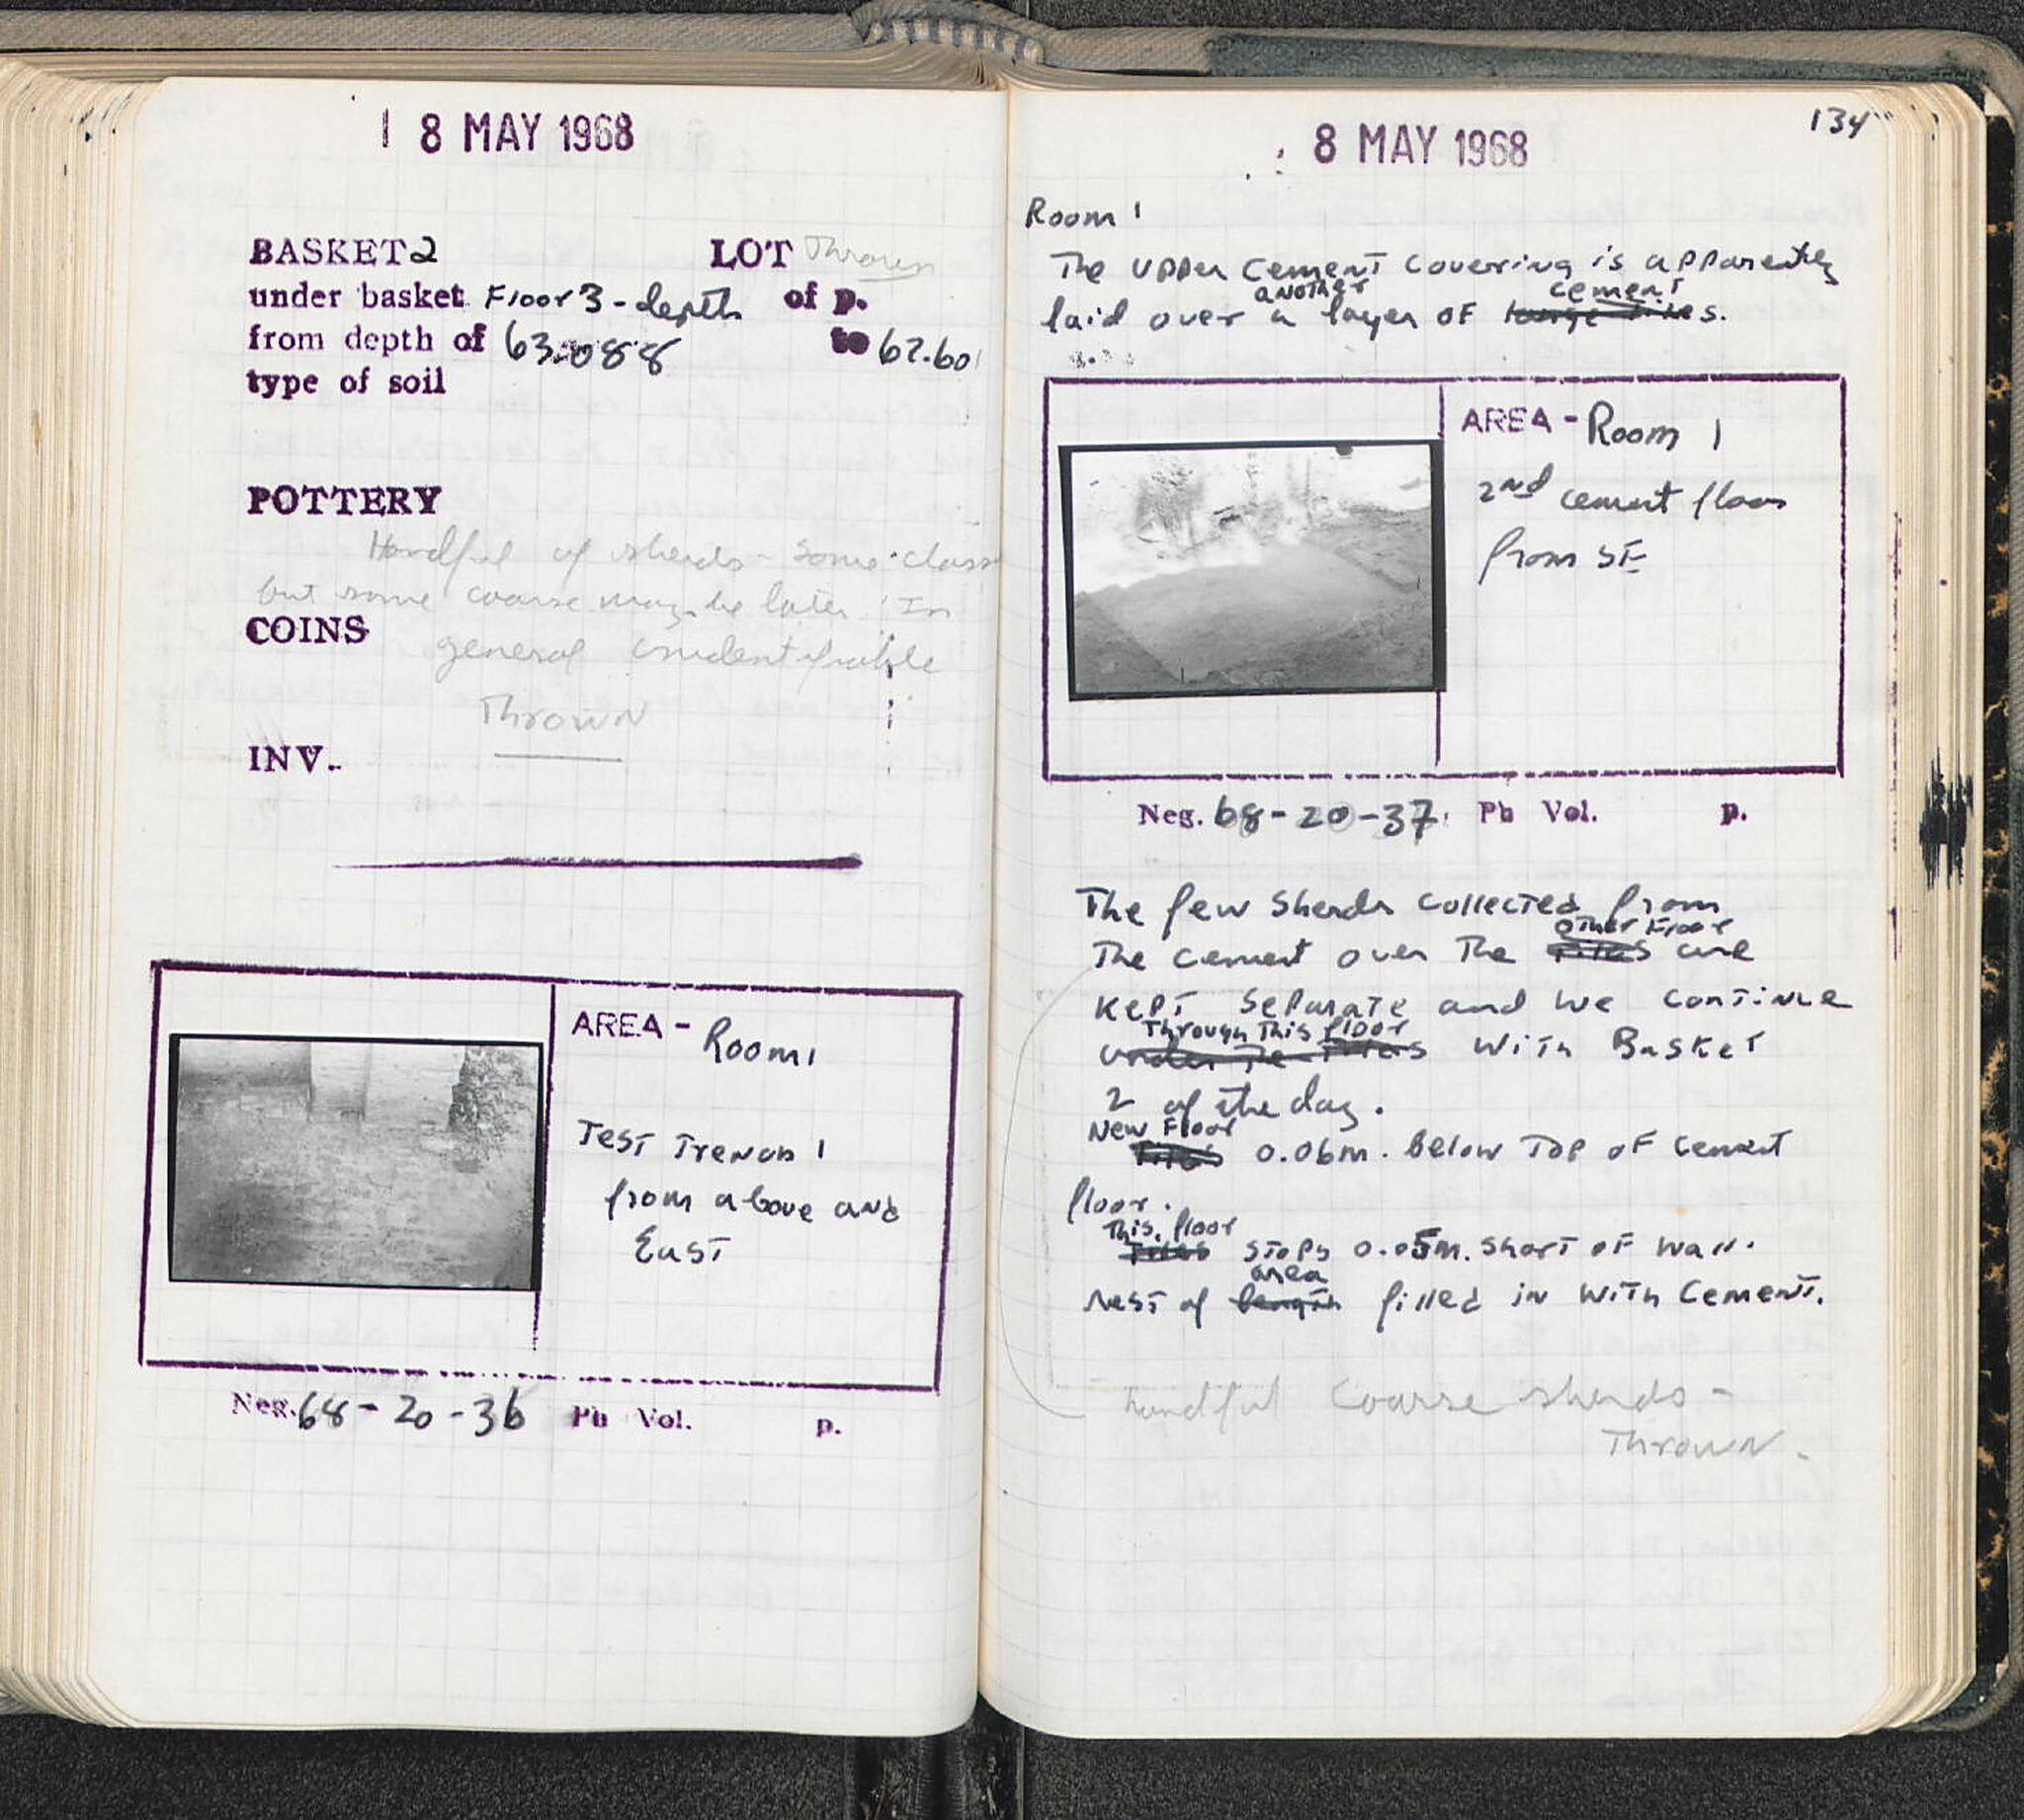 1 8 MAY 1968
BASKET 2 LOT Thrown
under basket Floor 3 - depth of p.
from depth of 63.088 to 62.60
type of soil
POTTERY
Handful of sherds - some class
but some coarse may be later. In
COINS
general unidentifiable
Thrown
INV.
AREA - Room 1
Test Trench 1
from above and
East
Neg. 68-20-36 Ph Vol. p.
134
8 MAY 1968
Room 1
The upper cement covering is apparently
another cement
laid over a layer of large tiles.
AREA - Room 1
2nd cement floor
from SE
Neg. 68-20-37 Ph Vol. p.
The few sherds collected from
other Floor
The cement over the tiles are
kept separate and we continue
Through This floor
under the tiles with Basket
2 of the day.
New Floor
Tiles 0.06m. below Top of cement
floor.
This floor
Tiles stops 0.05m. short of wall.
area
Rest of length filled in with cement.
handful coarse sherds -
Thrown.